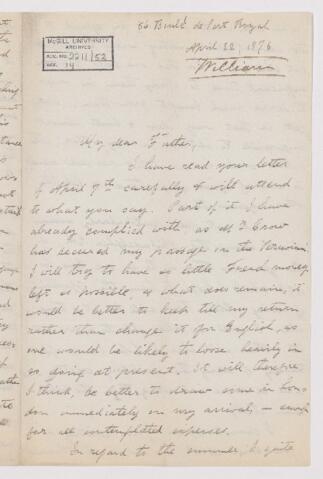 86 Boulᵈ de Port Royal
April 22, 1876
William
McGILL UNIVERSITY
ARCHIVES
ACC. NO. 2211/52
REF. 14
My dear Father,
I have read your letter
of April 7th carefully & will attend
to what you say. Part of it I have
already complied with as Mr Crow
has secured my passage in the Peruvian.
I will try to have as little French money
left as possible, as what does remain, it
would be better to keep till my return
rather than change it for English, as
one would be likely to loose heavily in
so doing at present. It will therefore,
I think, be better to draw some in Lon-
don immediately on my arrival, — enough
for all contemplated expenses.
In regard to the summer, I quite